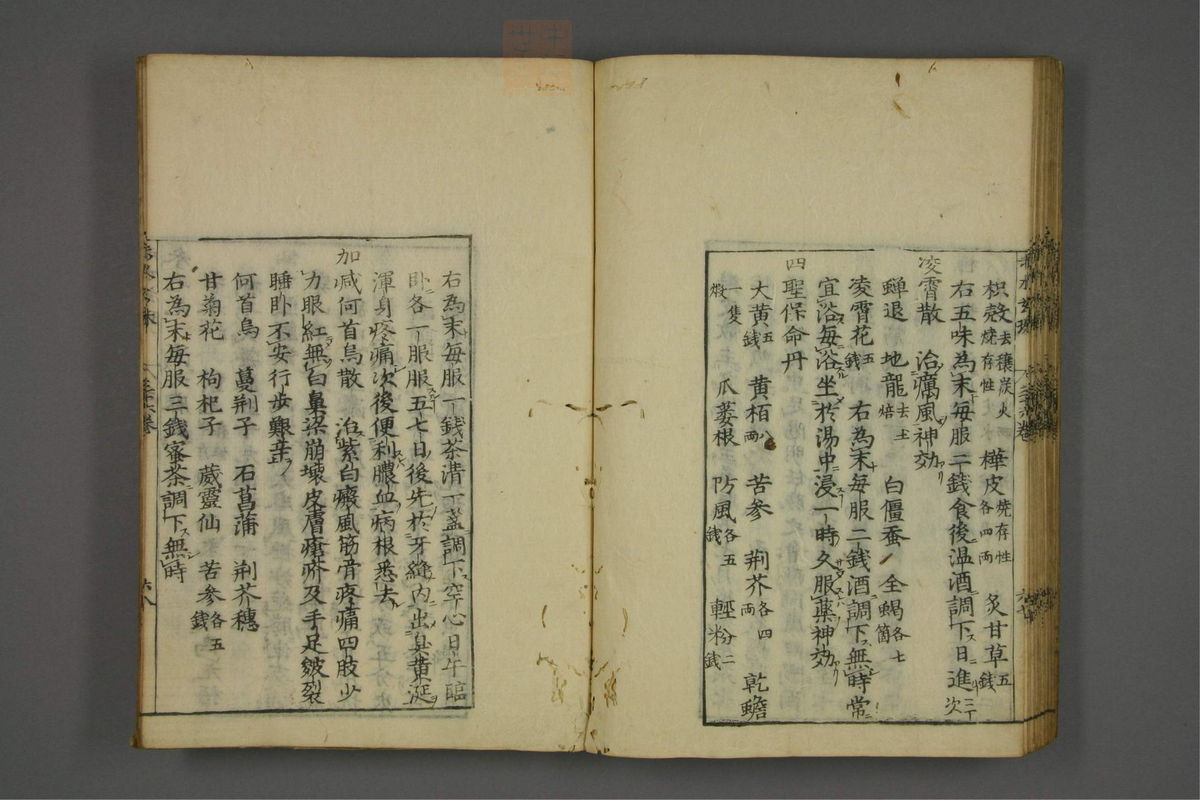 枳殻去穰炭火燒存性 樺皮燒存性各四両 炙甘草五錢
右五味為末每服二錢食後温酒調下日進三丁次
凌霄散 治癘風神効
蟬退 地龍去土焙 白僵蚕 全蝎各七箇
凌霄花五錢 右為末每服二錢酒調下無時常
宜浴每浴坐於湯中浸一時久服藥神効
四聖保命丹
大黄五錢 黄栢八両 苦参 荆芥各四両 乾蟾
一隻煅 瓜蔞根 防風各五錢 輕粉二錢
右為末每服一錢茶清一盞調下空心日午臨
卧各一服服五七日後先於牙縫内出臭黄涎
渾身疼痛次後便利膿血病根悉去
加减何首烏散 治紫白癜風筋骨疼痛四肢少
力眼紅無白鼻梁崩壞皮膚瘡疥及手足皴裂
睡卧不安行步艱辛
何首烏 蔓荆子 石菖蒲 荆芥穗
甘菊花 枸杞子 葳靈仙 苦参各五錢
右為末每服三錢蜜茶調下無時